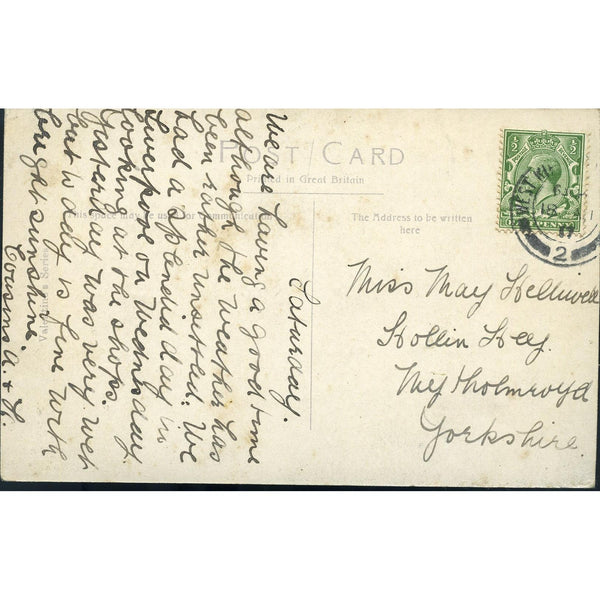 POST CARD
Printed in Great Britain
This space may be used for Communication
The Address to be written
here
Valentine's Series
Saturday.
We are having a good time
although the weather has
been rather unsettled. We
had a splendid day in
Liverpool on Wednesday
looking at the shops.
Yesterday was very wet
but to-day is fine with
bright sunshine.
Cousins A. & H.
Miss May Helliwell
Hollin Hey
Mytholmroyd
Yorkshire.
1/2
1/2
2